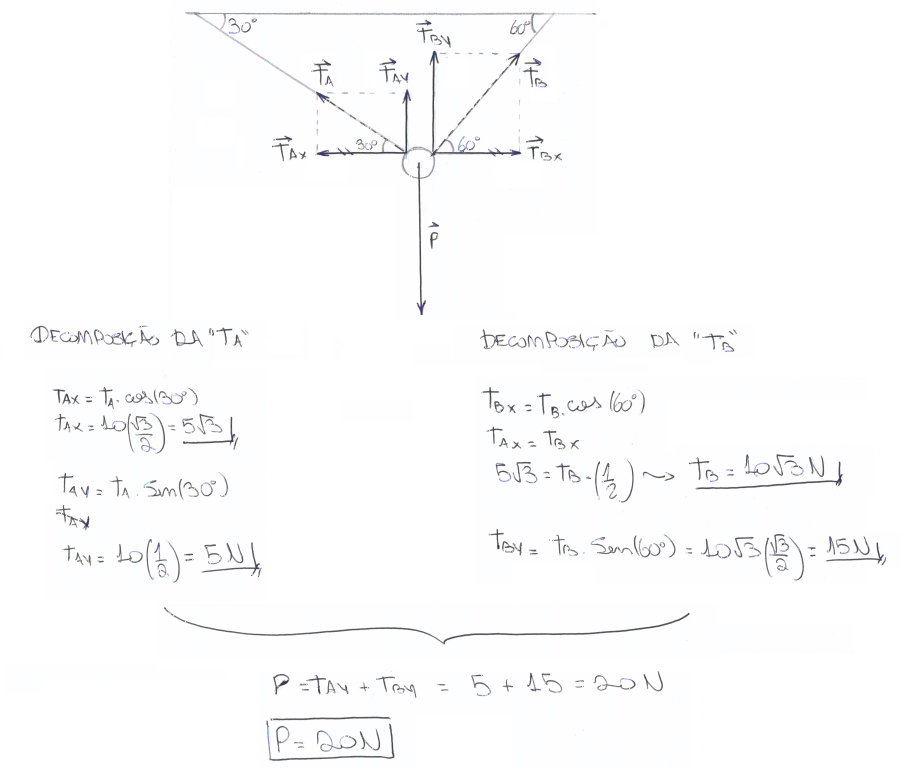 30°
60°
T⃗BY
T⃗A
T⃗AY
T⃗B
T⃗AX
30°
60°
T⃗BX
P⃗
DECOMPOSIÇÃO DA "TA"
TAX = TA . cos(30°)
TAX = 10(√3/2) = 5√3
TAY = TA . Sen(30°)
TAY
TAY = 10(1/2) = 5N
DECOMPOSIÇÃO DA "TB"
TBX = TB . cos(60°)
TAX = TBX
5√3 = TB . (1/2) ~> TB = 10√3 N
TBY = TB . Sen(60°) = 10√3(√3/2) = 15N
P = TAY + TBY = 5 + 15 = 20N
P = 20N